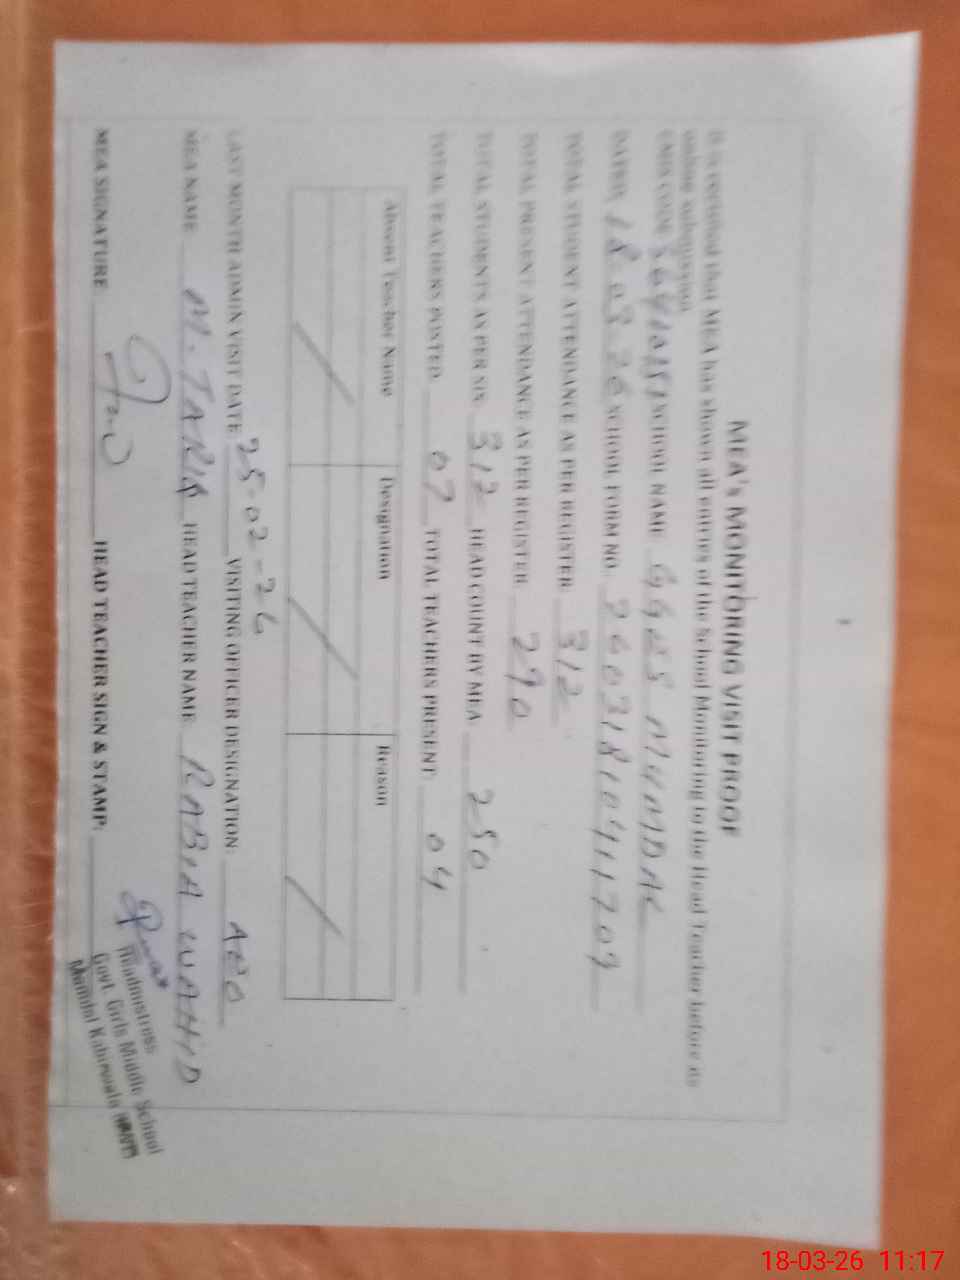 MEA's MONITORING VISIT PROOF
It is certified that MEA has shown all entries of the School Monitoring to the Head Teacher before its
online submission
EMIS CODE SCHOOL NAME GGES MUMDAL
DATED 18.03.26 SCHOOL FORM NO. 26031810411209
TOTAL STUDENT ATTENDANCE AS PER REGISTER 312
TOTAL PRESENT ATTENDANCE AS PER REGISTER 290
TOTAL STUDENTS AS PER SIS 312 HEAD COUNT BY MEA 250
TOTAL TEACHERS POSTED 07 TOTAL TEACHERS PRESENT 04
Absent Teacher Name Designation Reason
LAST MONTH ADMIN VISIT DATE 25-02-26 VISITING OFFICER DESIGNATION: AEO
MEA NAME M. TARIQ HEAD TEACHER NAME RABIA WAHID
MEA SIGNATURE HEAD TEACHER SIGN & STAMP:
Headmistress
Govt. Girls Middle School
Mumdal Kabirwala
18-03-26 11:17